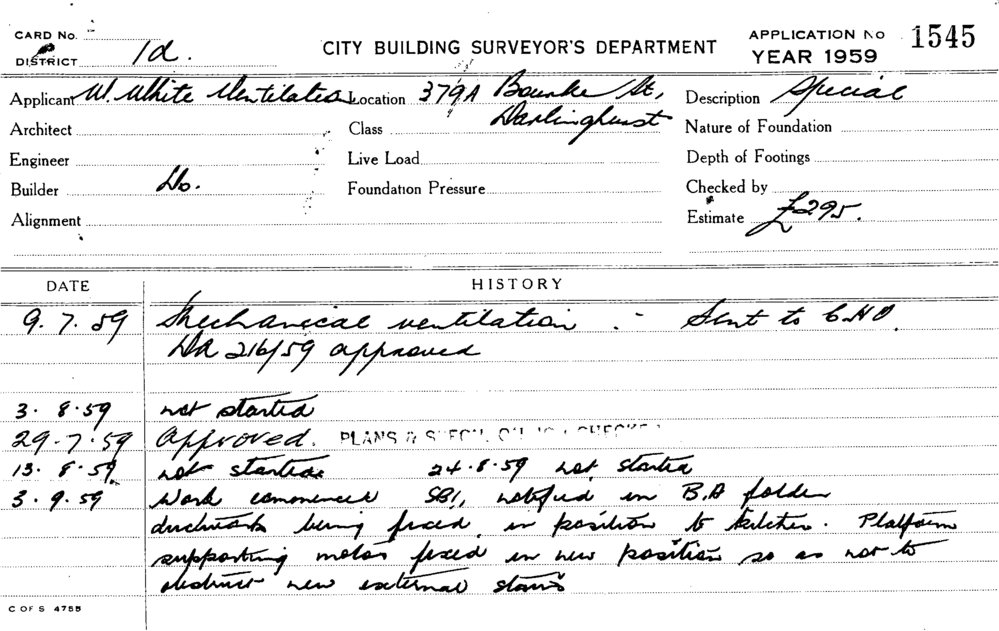 CARD No.
DISTRICT 1d.
CITY BUILDING SURVEYOR'S DEPARTMENT
APPLICATION No 1545
YEAR 1959
Applicant W. White Ventilation Location 379A Bourke St, Description Special
Darlinghurst
Architect Class Nature of Foundation
Engineer Live Load Depth of Footings
Builder Do. Foundation Pressure Checked by
Alignment Estimate £295.
DATE HISTORY
9.7.59 Mechanical ventilation :- Sent to C.H.O.
DA 216/59 approved
3.8.59 not started
29.7.59 Approved. PLANS &
13.8.59 not started 24.8.59 not started
3.9.59 Work commenced SBI, notified in B.A folder
ductwork being fixed in position to kitchen. Platform
supporting motor fixed in new position so as not to
obstruct new external stairs
C OF S 4755